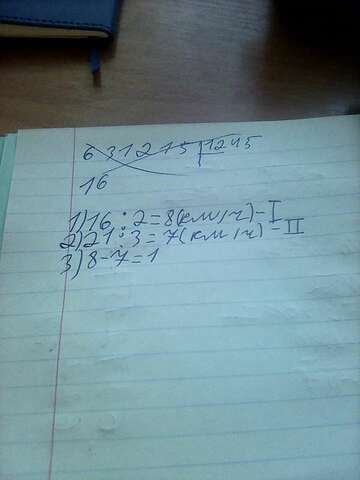 6 31215 | 1245
16
1) 16 : 2 = 8 (км/ч) - I
2) 21 : 3 = 7 (км/ч) - II
3) 8 - 7 = 1